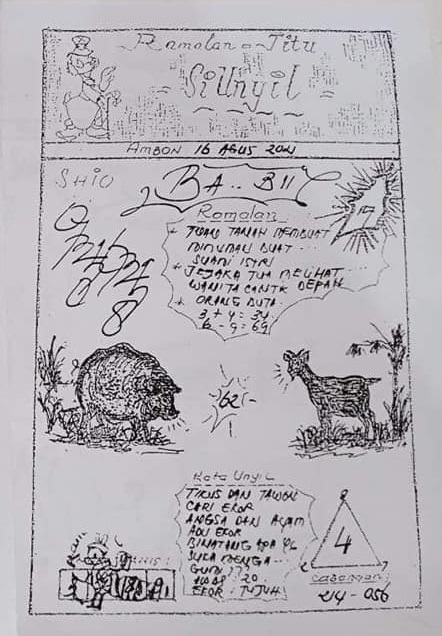 Ramalan - Jitu
"Si Unyil"
AMBON 16 AGUS 2021
SHIO
BA.. BII
17
Ramalan
+ TUAN TANAH MEMBUAT
MINUMAN BUAT ...
SUAMI ISTRI
+ JEJAKA TUA MELIHAT ...
WANITA CANTIK DEPAN
+ ORANG BUTA.
3 + 4 = 34
6 - 9 = 69
8
62
Kata Unyil
TIKUS DAN TAWON
CARI EKOR
ANGSA DAN AYAM
ADU EKOR
BINATANG APA YG
SUKA
20
EKOR : TUJUH
4
214 - 056